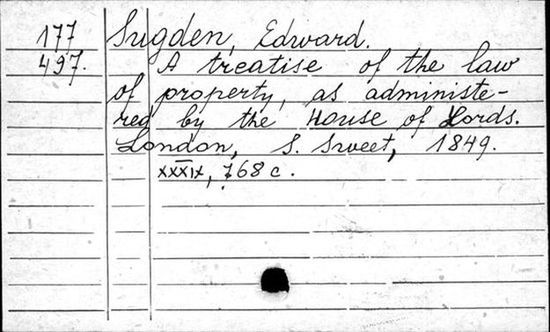 177 Sugden, Edward.
497. A treatise of the law
of property, as administe-
red by the House of Lords.
London, S. Sweet, 1849.
XXXIX, 768 c.